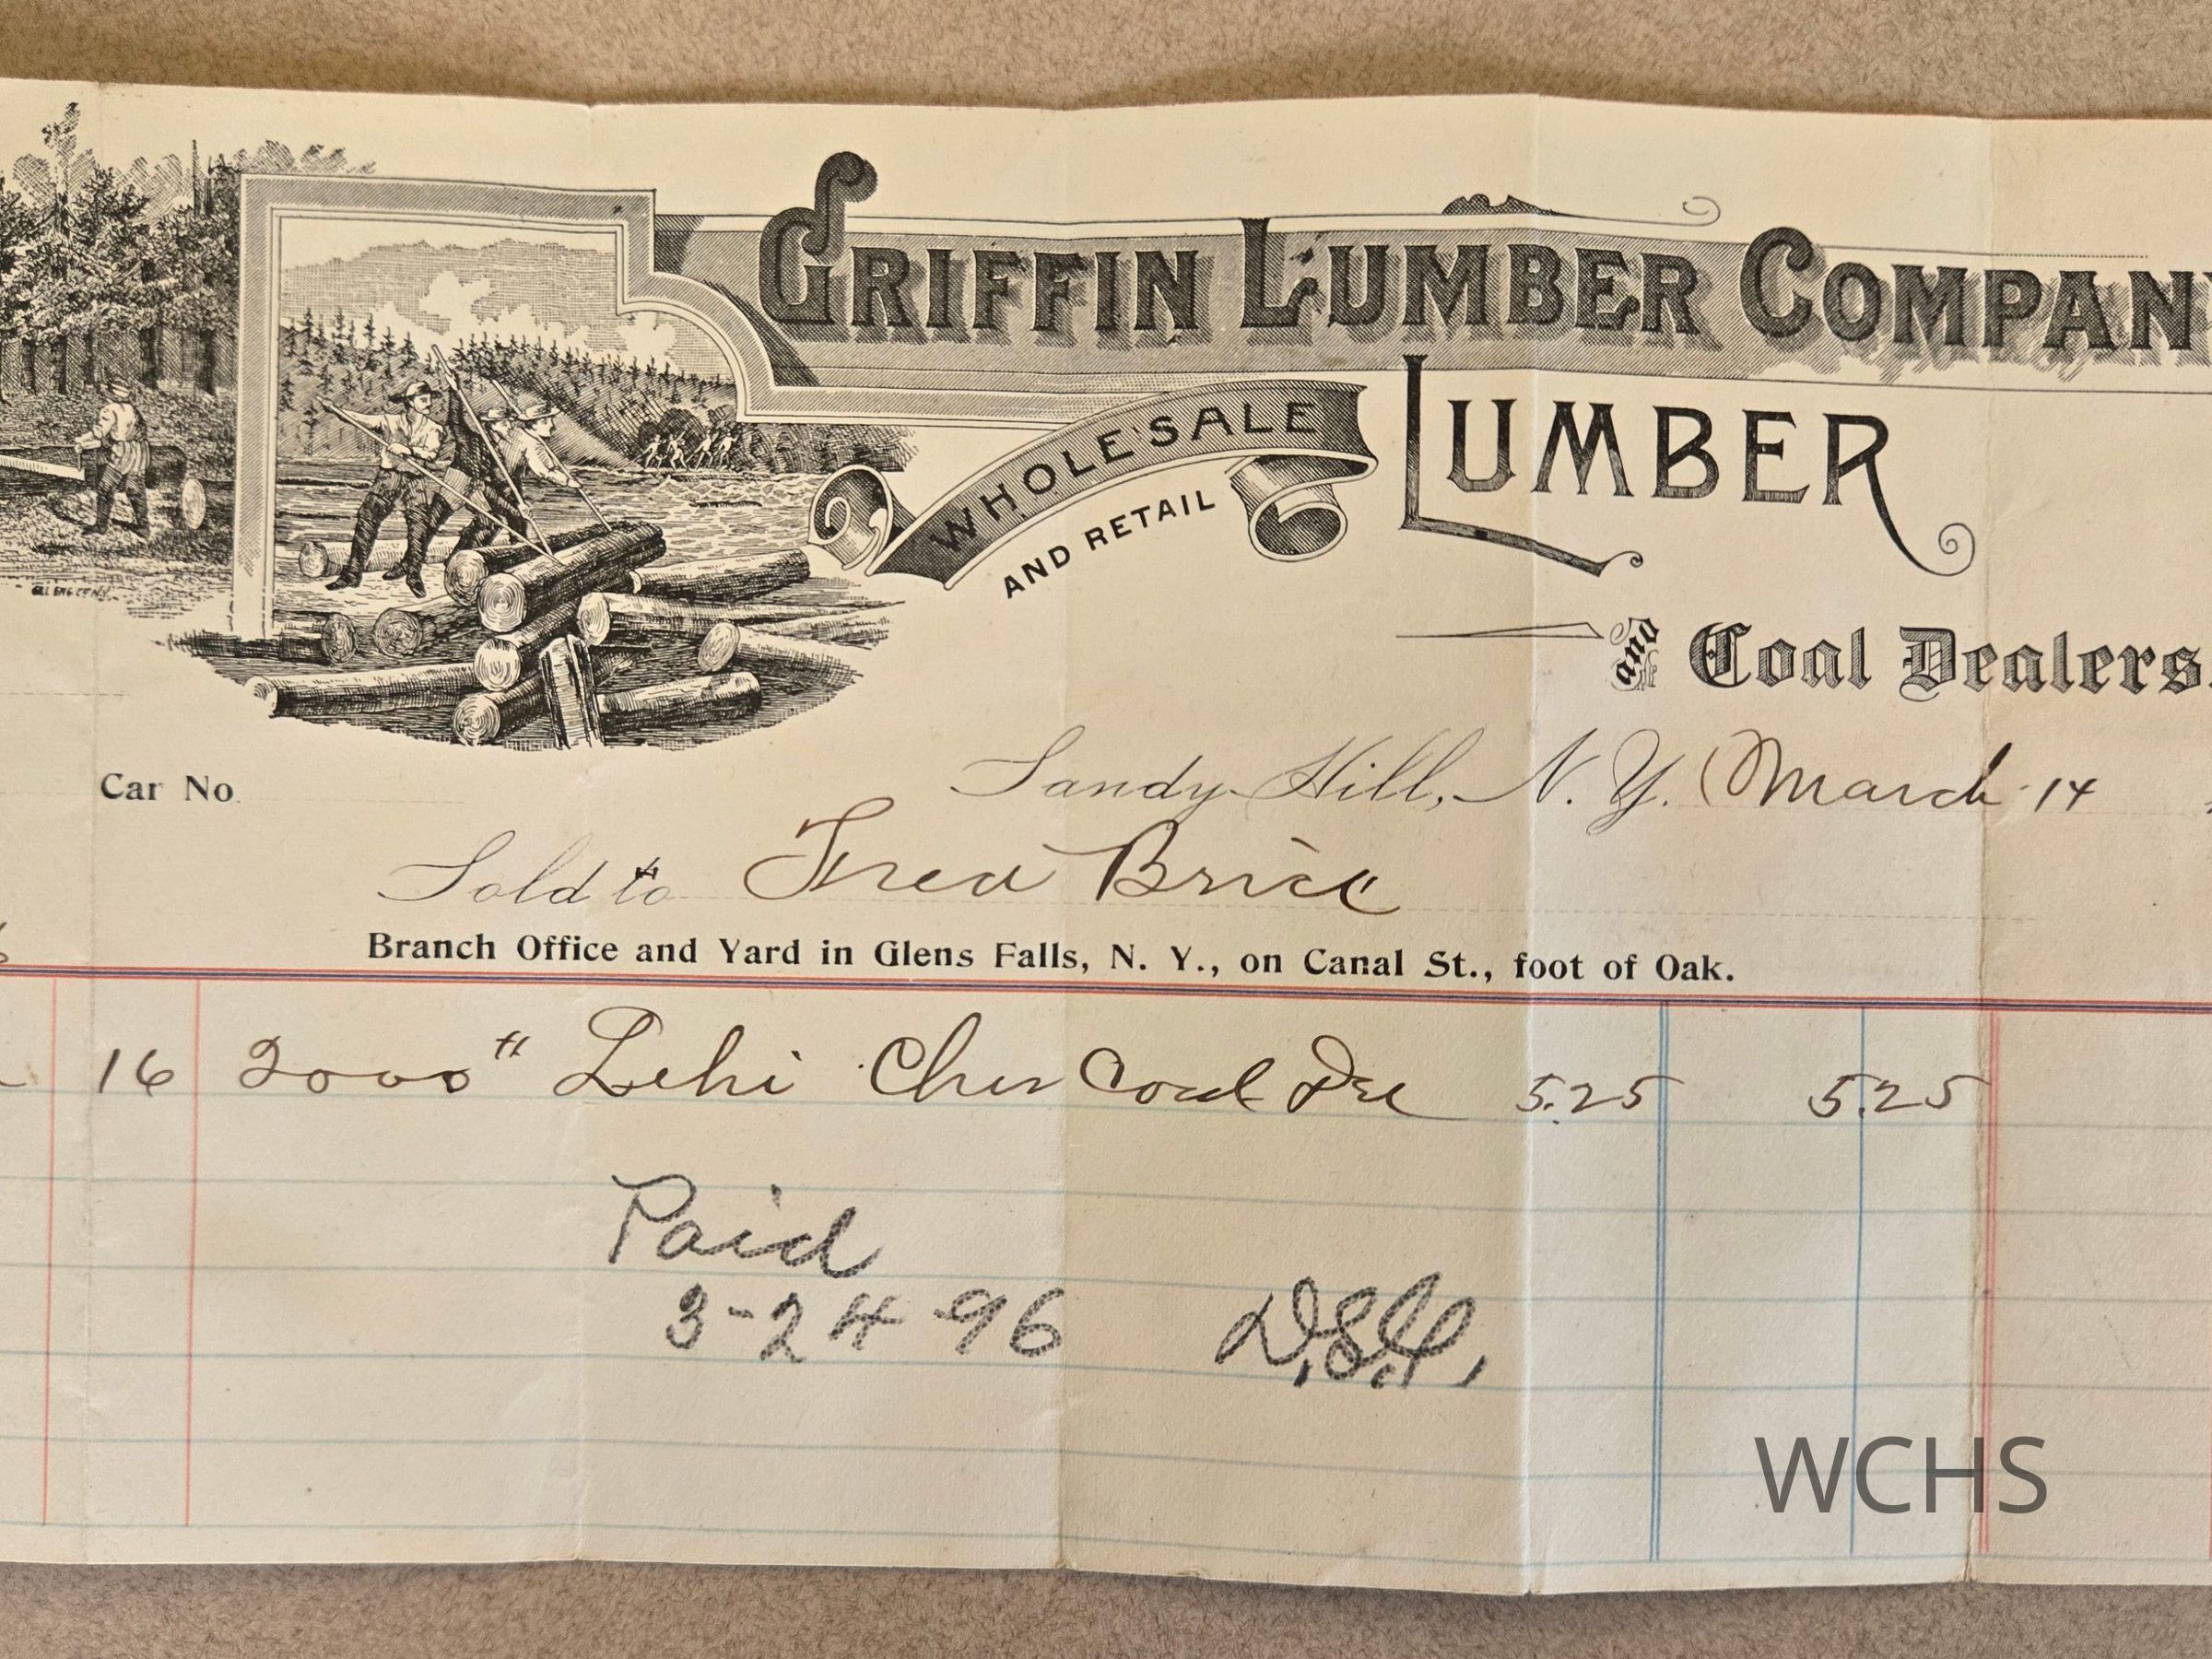 GRIFFIN LUMBER COMPAN
WHOLESALE
AND RETAIL
LUMBER
and Coal Dealers.
Car No.
Sandy Hill, N. Y. March 14
Sold to Fred Brice
Branch Office and Yard in Glens Falls, N. Y., on Canal St., foot of Oak.
16 2000 # Lehi Ches Coal 5.25 5.25
Paid
3-24-96
WCHS